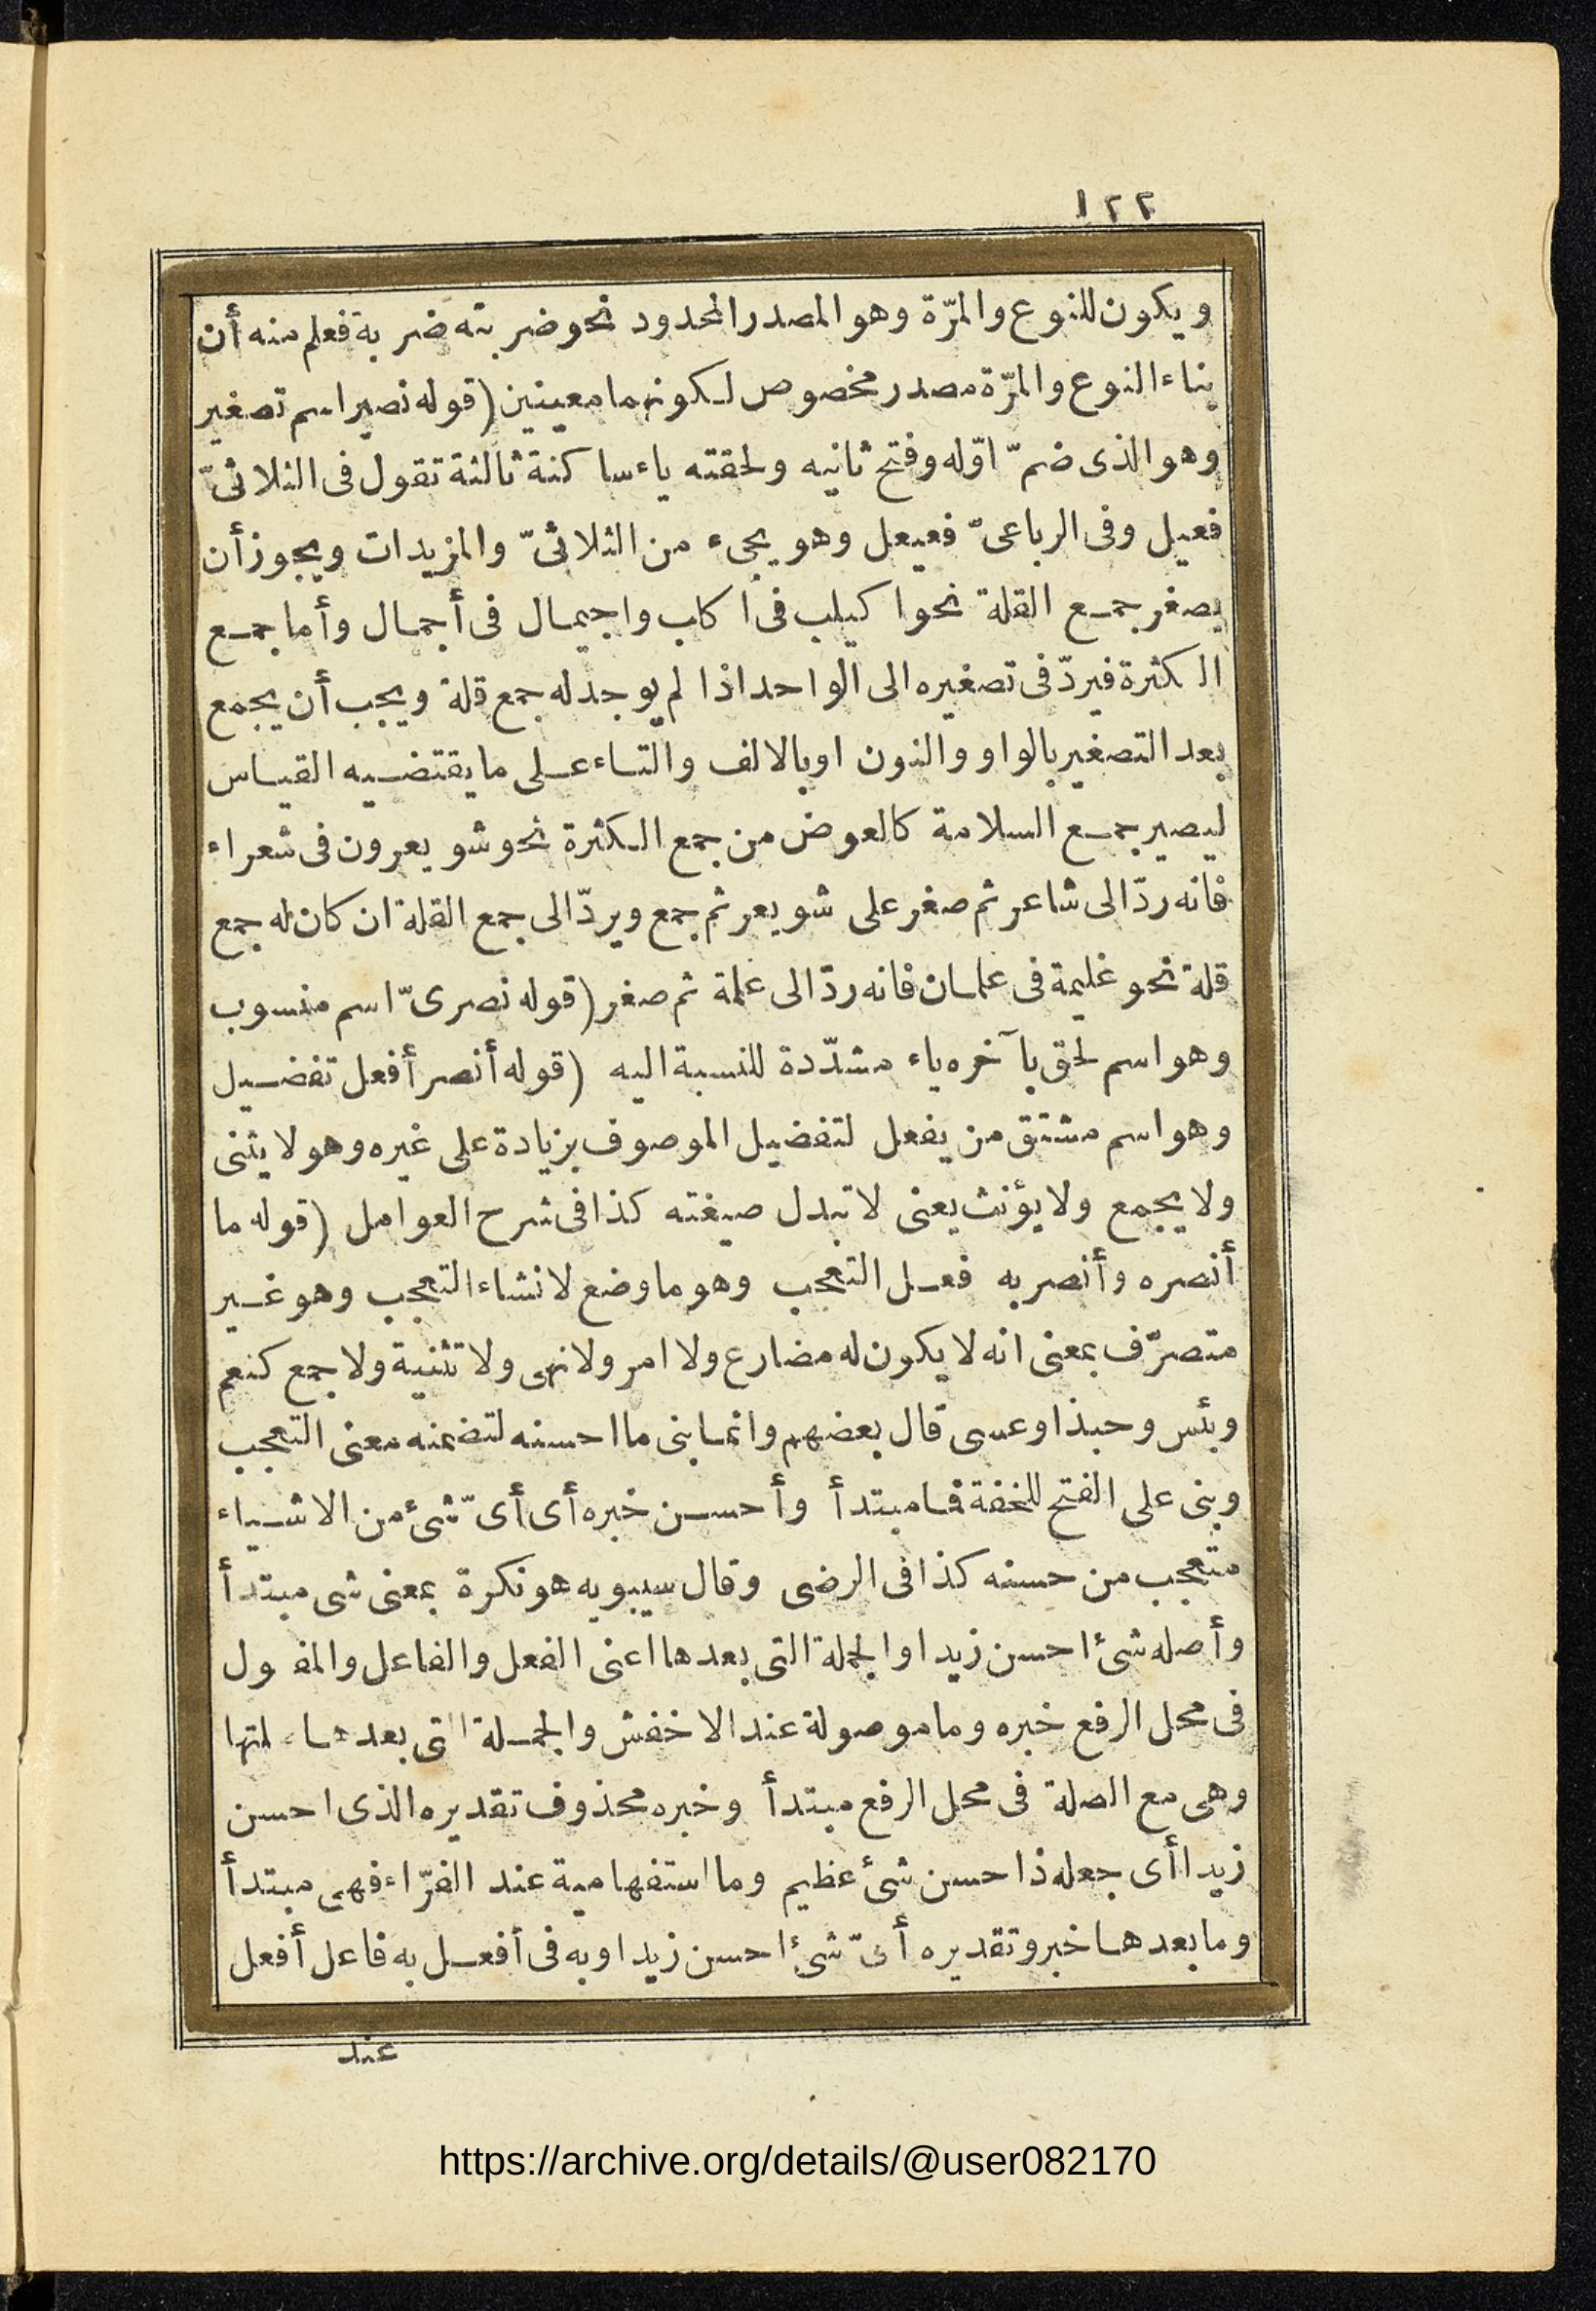 ١٢٢
ويكون للنوع والمرّة وهو المصدر المحدود نحو ضربته ضربة فعلم منه أن
بناء النوع والمرّة مصدر مخصوص لكونهما معينين (قوله نصير اسم تصغير
وهو الذى ضمّ اوّله وفتح ثانيه ولحقته ياء ساكنة ثالثة تقول فى الثلاثىّ
فعيل وفى الرباعىّ فعيعل وهو يجىء من الثلاثىّ والمزيدات ويجوز أن
يصغر جمع القلة نحو اكيلب فى اكلب واجيمال فى أجمال وأما جمع
الكثرة فيردّ فى تصغيره الى الواحد اذا لم يوجد له جمع قلة ويجب أن يجمع
بعد التصغير بالواو والنون او بالالف والتاء على ما يقتضيه القياس
ليصير جمع السلامة كالعوض من جمع الكثرة نحو شويعرون فى شعراء
فانه ردّ الى شاعر ثم صغر على شويعر ثم جمع ويردّ الى جمع القلة ان كان له جمع
قلة نحو غليمة فى غلمان فانه ردّ الى غلمة ثم صغر (قوله نصرىّ اسم منسوب
وهو اسم لحق بآخره ياء مشدّدة للنسبة اليه (قوله أنصر أفعل تفضيل
وهو اسم مشتق من يفعل لتفضيل الموصوف بزيادة على غيره وهو لا يثنى
ولا يجمع ولا يؤنث يعنى لا تبدل صيغته كذا فى شرح العوامل (قوله ما
أنصره وأنصر به فعل التعجب وهو ما وضع لانشاء التعجب وهو غير
متصرّف بمعنى انه لا يكون له مضارع ولا امر ولا نهى ولا تثنية ولا جمع كنعم
وبئس وحبذا وعسى قال بعضهم وانما بنى ما احسنه لتضمنه معنى التعجب
وبنى على الفتح للخفة فما مبتدأ وأحسن خبره أى أىّ شئ من الاشياء
متعجب من حسنه كذا فى الرضى وقال سيبويه هو نكرة بمعنى شى مبتدأ
وأصله شئ احسن زيدا والجملة التى بعدها اعنى الفعل والفاعل والمفعول
فى محل الرفع خبره وما موصولة عند الاخفش والجملة التى بعدها صلتها
وهى مع الصلة فى محل الرفع مبتدأ وخبره محذوف تقديره الذى احسن
زيدا أى جعله ذا حسن شئ عظيم وما استفهامية عند الفرّاء فهى مبتدأ
وما بعدها خبر وتقديره أىّ شئ احسن زيدا وبه فى أفعل به فاعل أفعل
عند
https://archive.org/details/@user082170